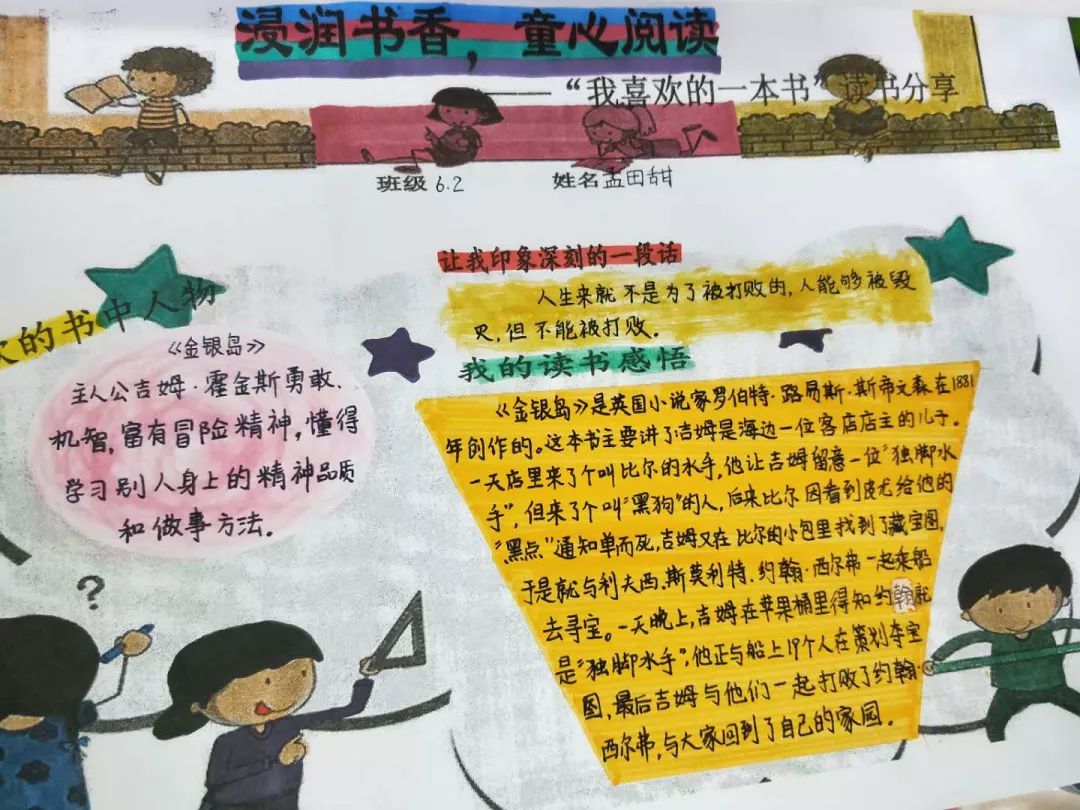 浸润书香，童心阅读
——“我喜欢的一本书”读书分享
班级 6.2 姓名 孟田甜
的书中人物
《金银岛》
主人公吉姆·霍金斯勇敢、
机智，富有冒险精神，懂得
学习别人身上的精神品质
和做事方法。
让我印象深刻的一段话
人生来就不是为了被打败的，人能够被毁
灭，但不能被打败。
我的读书感悟
《金银岛》是英国小说家罗伯特·路易斯·斯蒂文森在1881
年创作的。这本书主要讲了吉姆是海边一位客店店主的儿子。
一天店里来了个叫比尔的水手，他让吉姆留意一位“独脚水
手”，但来了个叫“黑狗”的人，后来比尔因看到皮尤给他的
“黑点”通知单而死，吉姆又在比尔的小包里找到了藏宝图，
于是就与利夫西、斯莫利特、约翰·西尔弗一起乘船
去寻宝。一天晚上，吉姆在苹果桶里得知约翰就
是“独脚水手”，他正与船上19个人在策划夺宝
图，最后吉姆与他们一起打败了约翰·
西尔弗，与大家回到了自己的家园。
?